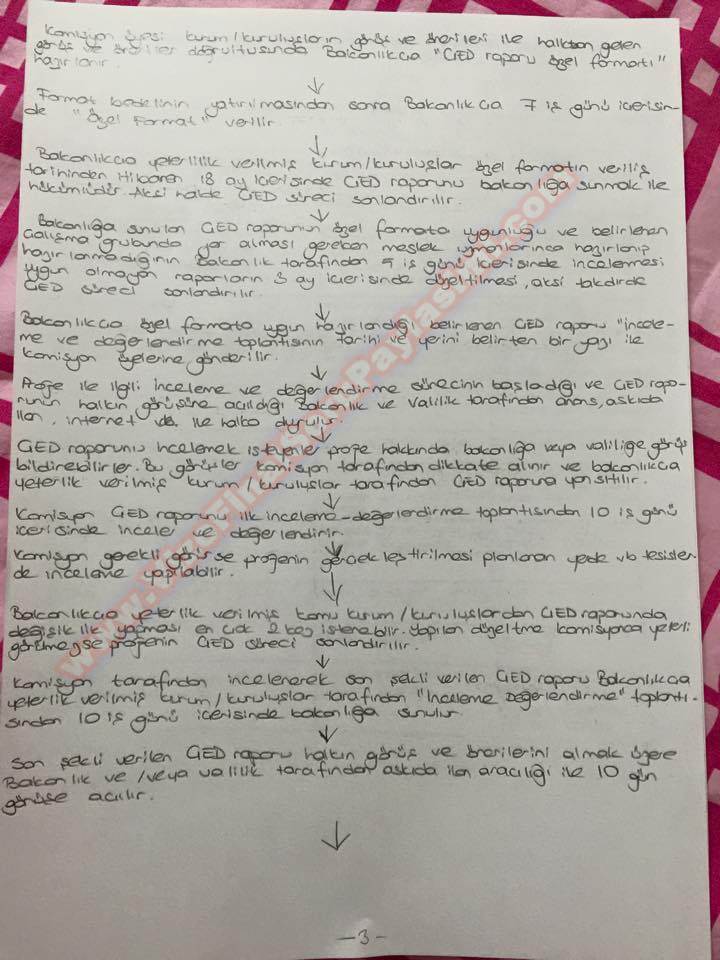 Komisyon üyesi kurum/kuruluşların görüş ve önerileri ile halktan gelen
görüş ve öneriler doğrultusunda Bakanlıkca "ÇED raporu özel formatı"
hazırlanır.
Format bedelinin yatırılmasından sonra Bakanlıkca 7 iş günü icerisin-
de "özel Format" verilir.
Bakanlıkca yeterlilik verilmiş kurum/kuruluşlar özel formatın veriliş
tarihinden itibaren 18 ay icerisinde ÇED raporunu bakanlığa sunmak ile
hükümlüdür. Aksi halde ÇED süreci sonlandırılır.
Bakanlığa sunulan ÇED raporunun özel formata uygunluğu ve belirlenen
çalışma grubunda yer alması gereken meslek uzmanlarınca hazırlanıp
hazırlanmadığının Bakanlık tarafından 5 iş günü icerisinde incelenmesi
uygun olmayan raporların 3 ay icerisinde düzeltilmesi, aksi takdirde
ÇED süreci sonlandırılır.
Bakanlıkca özel formata uygun hazırlandığı belirlenen ÇED raporu "incele-
me ve değerlendirme toplantısının tarihi ve yerini belirten bir yazı ile
komisyon üyelerine gönderilir.
Proje ile ilgili inceleme ve değerlendirme sürecinin başladığı ve ÇED rapo-
runun halkın görüşüne açıldığı Bakanlık ve Valilik tarafından anons, askıda
ilan, internet vb. ile halka duyurulur.
ÇED raporunu incelemek isteyenler proje hakkında bakanlığa veya valiliğe görüş
bildirebilirler. Bu görüşler komisyon tarafından dikkate alınır ve bakanlıkca
yeterlik verilmiş kurum/kuruluşlar tarafından ÇED raporuna yansıtılır.
Komisyon ÇED raporunu ilk inceleme-değerlendirme toplantısından 10 iş günü
icerisinde inceler ve değerlendirir.
Komisyon gerekli görürse projenin gerçekleştirilmesi planlanan yerde vb tesisler-
de inceleme yapılabilir.
Bakanlıkca yeterlik verilmiş kamu kurum/kuruluşlardan ÇED raporunda
değişiklik yapması en çok 2 kez istenebilir. Yapılan düzeltme komisyonca yeterli
görülmezse projenin ÇED süreci sonlandırılır.
Komisyon tarafından incelenerek son şekli verilen ÇED raporu Bakanlıkca
yeterlik verilmiş kurum/kuruluşlar tarafından "İnceleme Değerlendirme" toplantı-
sından 10 iş günü icerisinde bakanlığa sunulur.
Son şekli verilen ÇED raporu halkın görüş ve önerilerini almak üzere
Bakanlık ve /veya valilik tarafından askıda ilan aracılığı ile 10 gün
görüşe açılır.
-3-